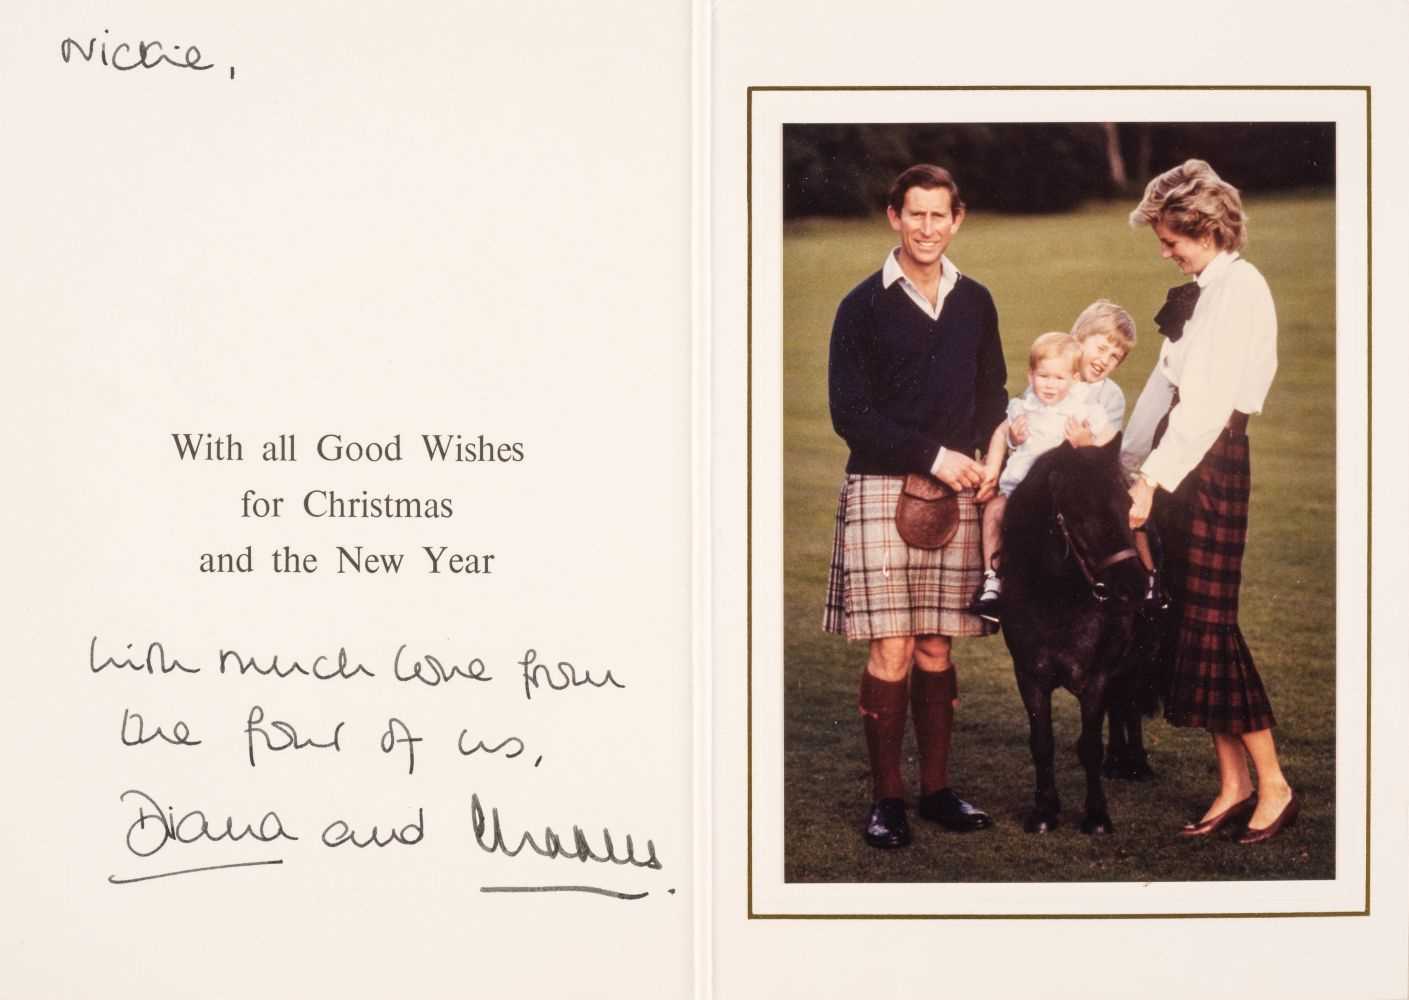 Nickie,
With all Good Wishes
for Christmas
and the New Year
with much love from
the four of us,
Diana and Charles.